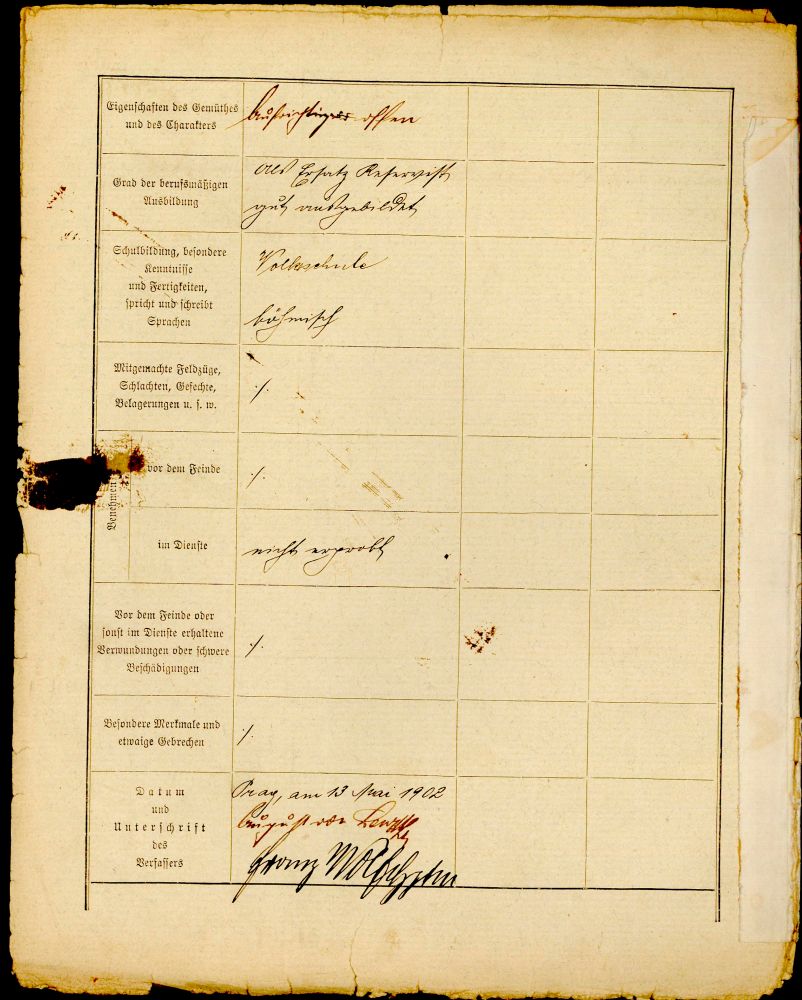 Eigenschaften des Gemüthes
und des Charakters
offen
Grad der berufsmäßigen
Ausbildung
als Ersatz Reservist
gut ausgebildet
Schulbildung, besondere
Kenntnisse
und Fertigkeiten,
spricht und schreibt
Sprachen
Volksschule
böhmisch
Mitgemachte Feldzüge,
Schlachten, Gefechte,
Belagerungen u. s. w.
./.
Benehmen
vor dem Feinde
./.
im Dienste
nicht erprobt
Vor dem Feinde oder
sonst im Dienste erhaltene
Verwundungen oder schwere
Beschädigungen
./.
Besondere Merkmale und
etwaige Gebrechen
./.
Datum
und
Unterschrift
des
Verfassers
Prag, am 13 Mai 1902
August
Franz